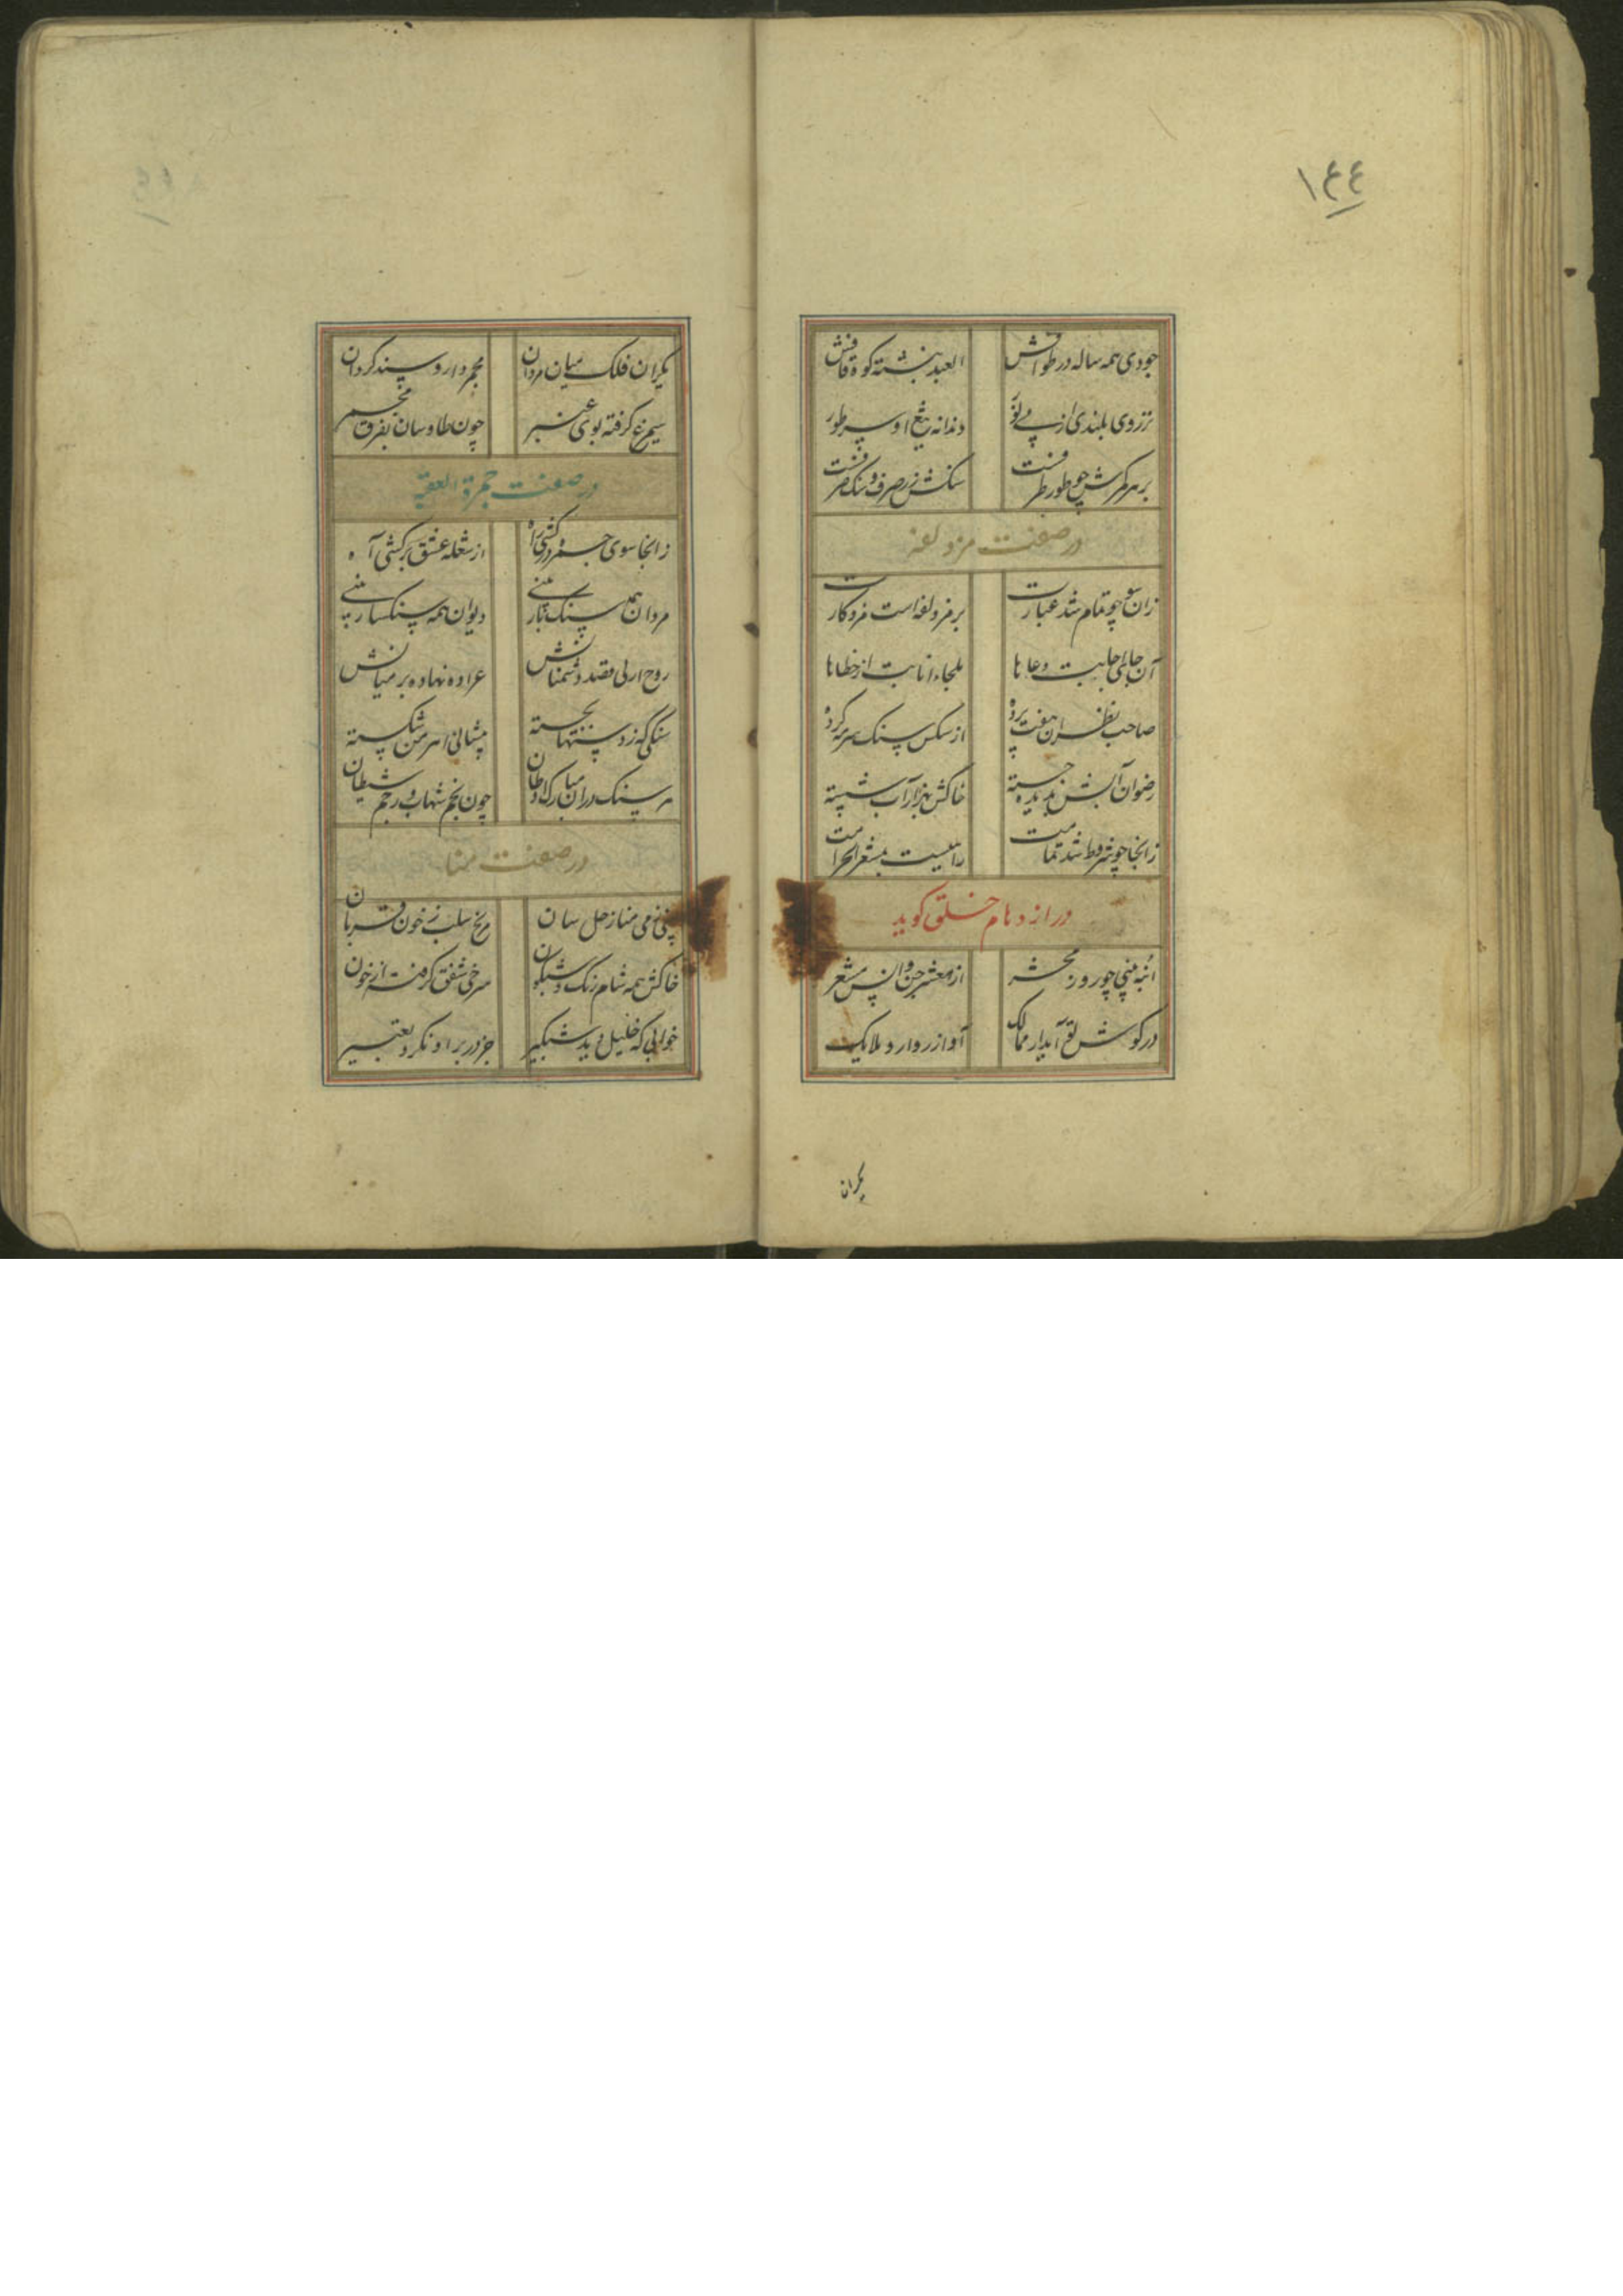 ١٤٤
جودی همه ساله در طوافش العبد نبشته کوه قافش
دندانه تیغ او سر طور
بر هر کمرش چو طور طرفست سنکش زر صرف و سنک صرفست
در صفت مزدلفه
زان سو چو تمام شد عبارت بر مزدلفه است مزد کارت
آن جای اجابت دعاها ملجاء انابت از خطاها
صاحب نظران هفت پرده از سنکش سنک سرمه کرده
رضوان آبش بدیده جسته خاکش بهزار آب شسته
زانجا چو شروط شد تمامت رائیست بمشعر الحرامت
در ازدحام خلق کوید
انبه بینی چو روز محشر از معشر جن و انس مشعر
در کوش تو آید از ممالک آواز روارو ملایک
بکران
بکران فلک میان مردان مجمر دار و سپند کردان
سیمرغ کرفته بوی عنبر چون طاوسان بفرق مجمر
در صفت جمرة العقبه
زانجا سوی جمره در کشی راه از شعله عشق برکشی آه
مردان همه سنک بار بینی دیوان همه سنکسار بینی
روح از پی قصد دشمنانش عراده نهاده بر میانش
سنکی که ز دستها بجسته پیشانی اهرمن شکسته
هر سنک در آن مبارک اوطان چون نجم شهاب و رجم شیطان
در صفت منا
بینی زمی منا زحل سان مریخ سلب ز خون قربان
خاکش همه شام رنک و شبکون سرخی شفق کرفته از خون
خوابی که خلیل دید شبکیر جز در بر او نکرد تعبیر